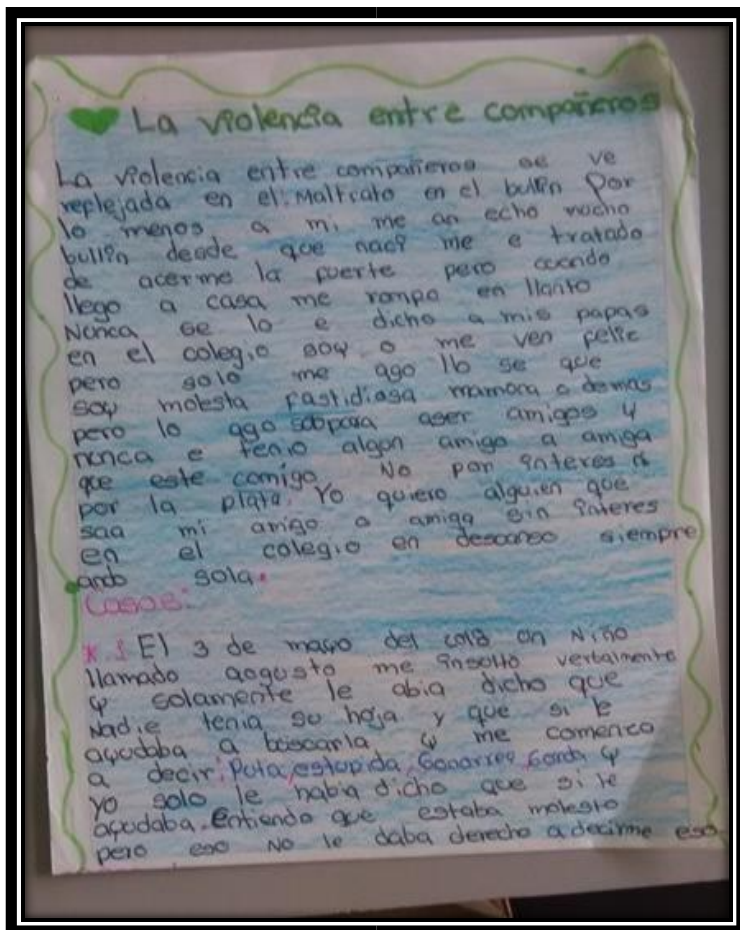 La violencia entre compañeros
La violencia entre compañeros se ve
replejada en el: Maltrato en el bullin Por
lo menos a mi me an echo mucho
bullin desde que naci me e tratado
de acerme la fuerte pero cuando
llego a casa me rompo en llanto
Nunca se lo e dicho a mis papas
en el colegio soy o me ven felic
pero solo me ago lo se que
soy molesta fastidiosa mamona o demas
pero lo ago para aser amigos y
nunca e tenio algun amigo a amiga
que este comigo No por interes o
por la plata. Yo quiero alguien que
saa mi amigo o amiga sin interes
en el colegio en descanso siempre
ando sola.
Casos:
*.1 El 3 de mayo del un Niño
llamado augusto me insulto verbalmente
y solamente le abia dicho que
Nadie tenia su hoja y que si le
ayudaba a buscarla y me comenco
a decir: Puta, estupida, Gonorrea, Gorda y
Yo solo le habia dicho que si le
ayudaba. Entiendo que estaba molesto
pero eso No le daba derecho a decirme eso